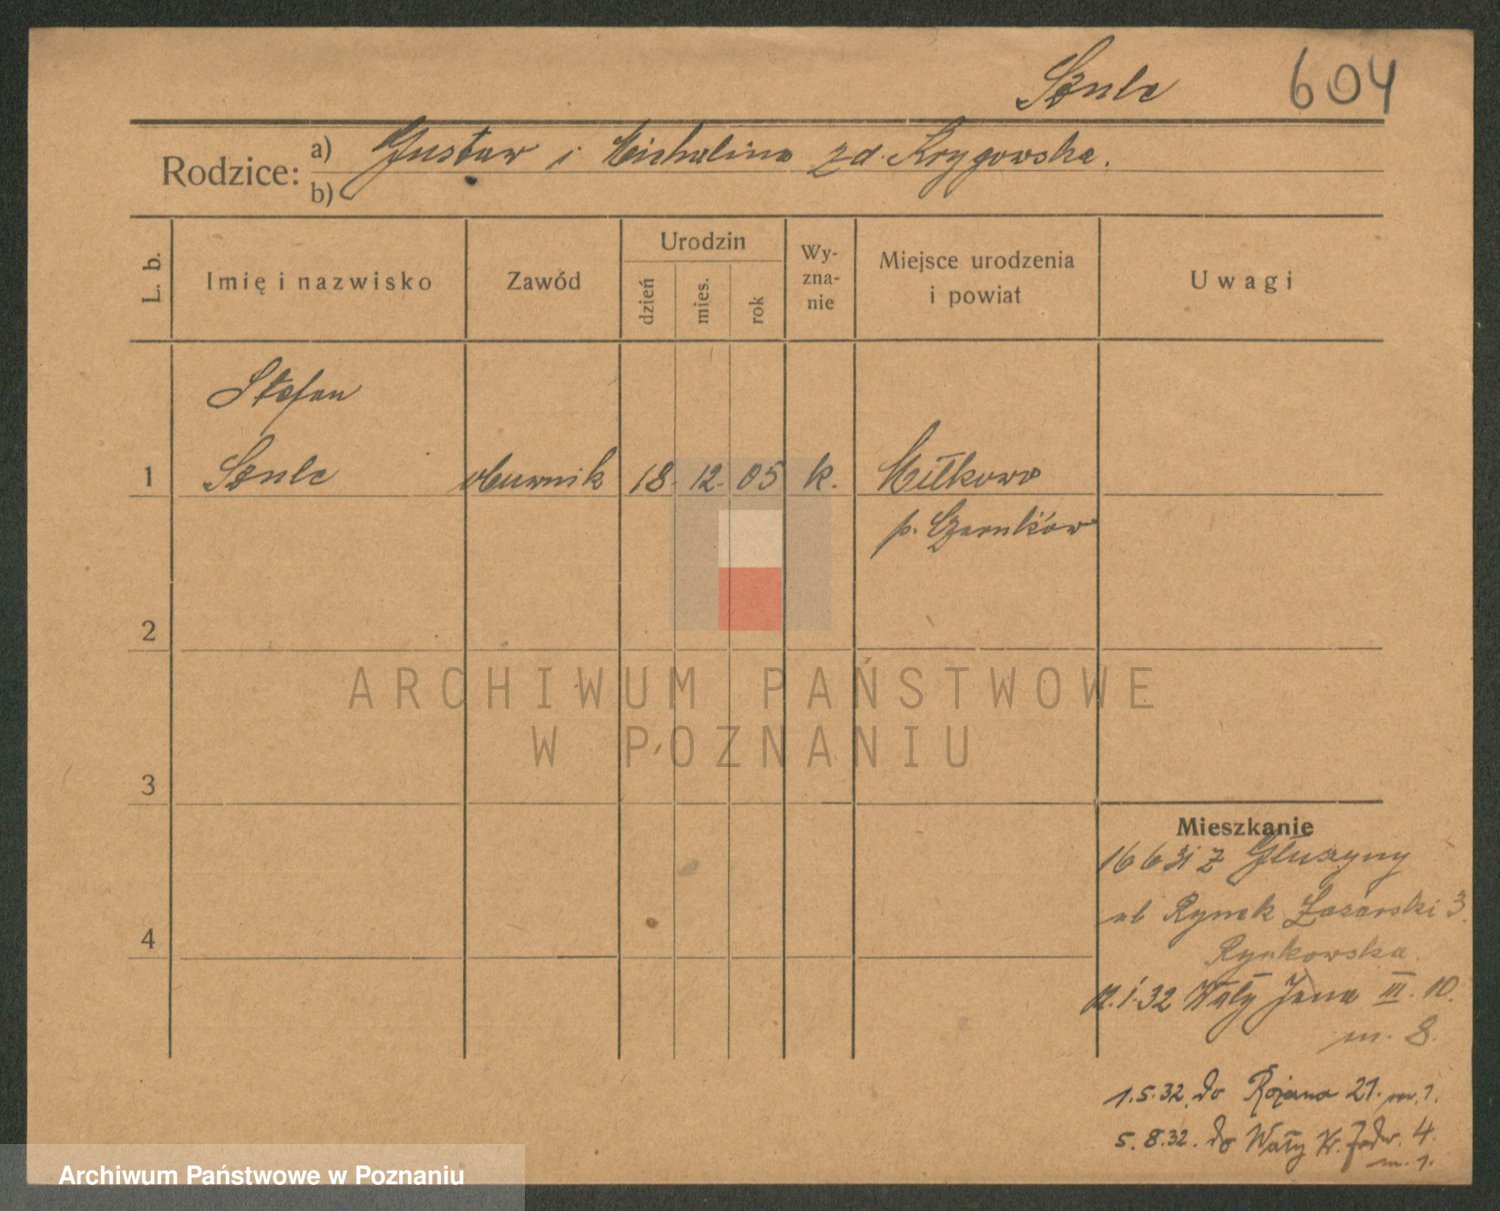 Szulc 604
Rodzice: a) Gustaw i Michalina zd. Krygowska.
b)
L. b.
Imię i nazwisko
Zawód
Urodzin
dzień
mies.
rok
Wy-
zna-
nie
Miejsce urodzenia
i powiat
Uwagi
Stefan
1 Szulc 18. 12. 05 k. Miłkowo
p. Czarnków
2
3
4
ARCHIWUM PAŃSTWOWE
W POZNANIU
Mieszkanie
16 6 31 z Głuszyny
ul Rynek Łazarski 3.
Rynkowska.
12.1.32 Wały Jana III. 10.
m. 8.
1.5.32. do 21. m. 1.
5.8.32. do Wały Kr. Jadw. 4.
m. 1.
Archiwum Państwowe w Poznaniu